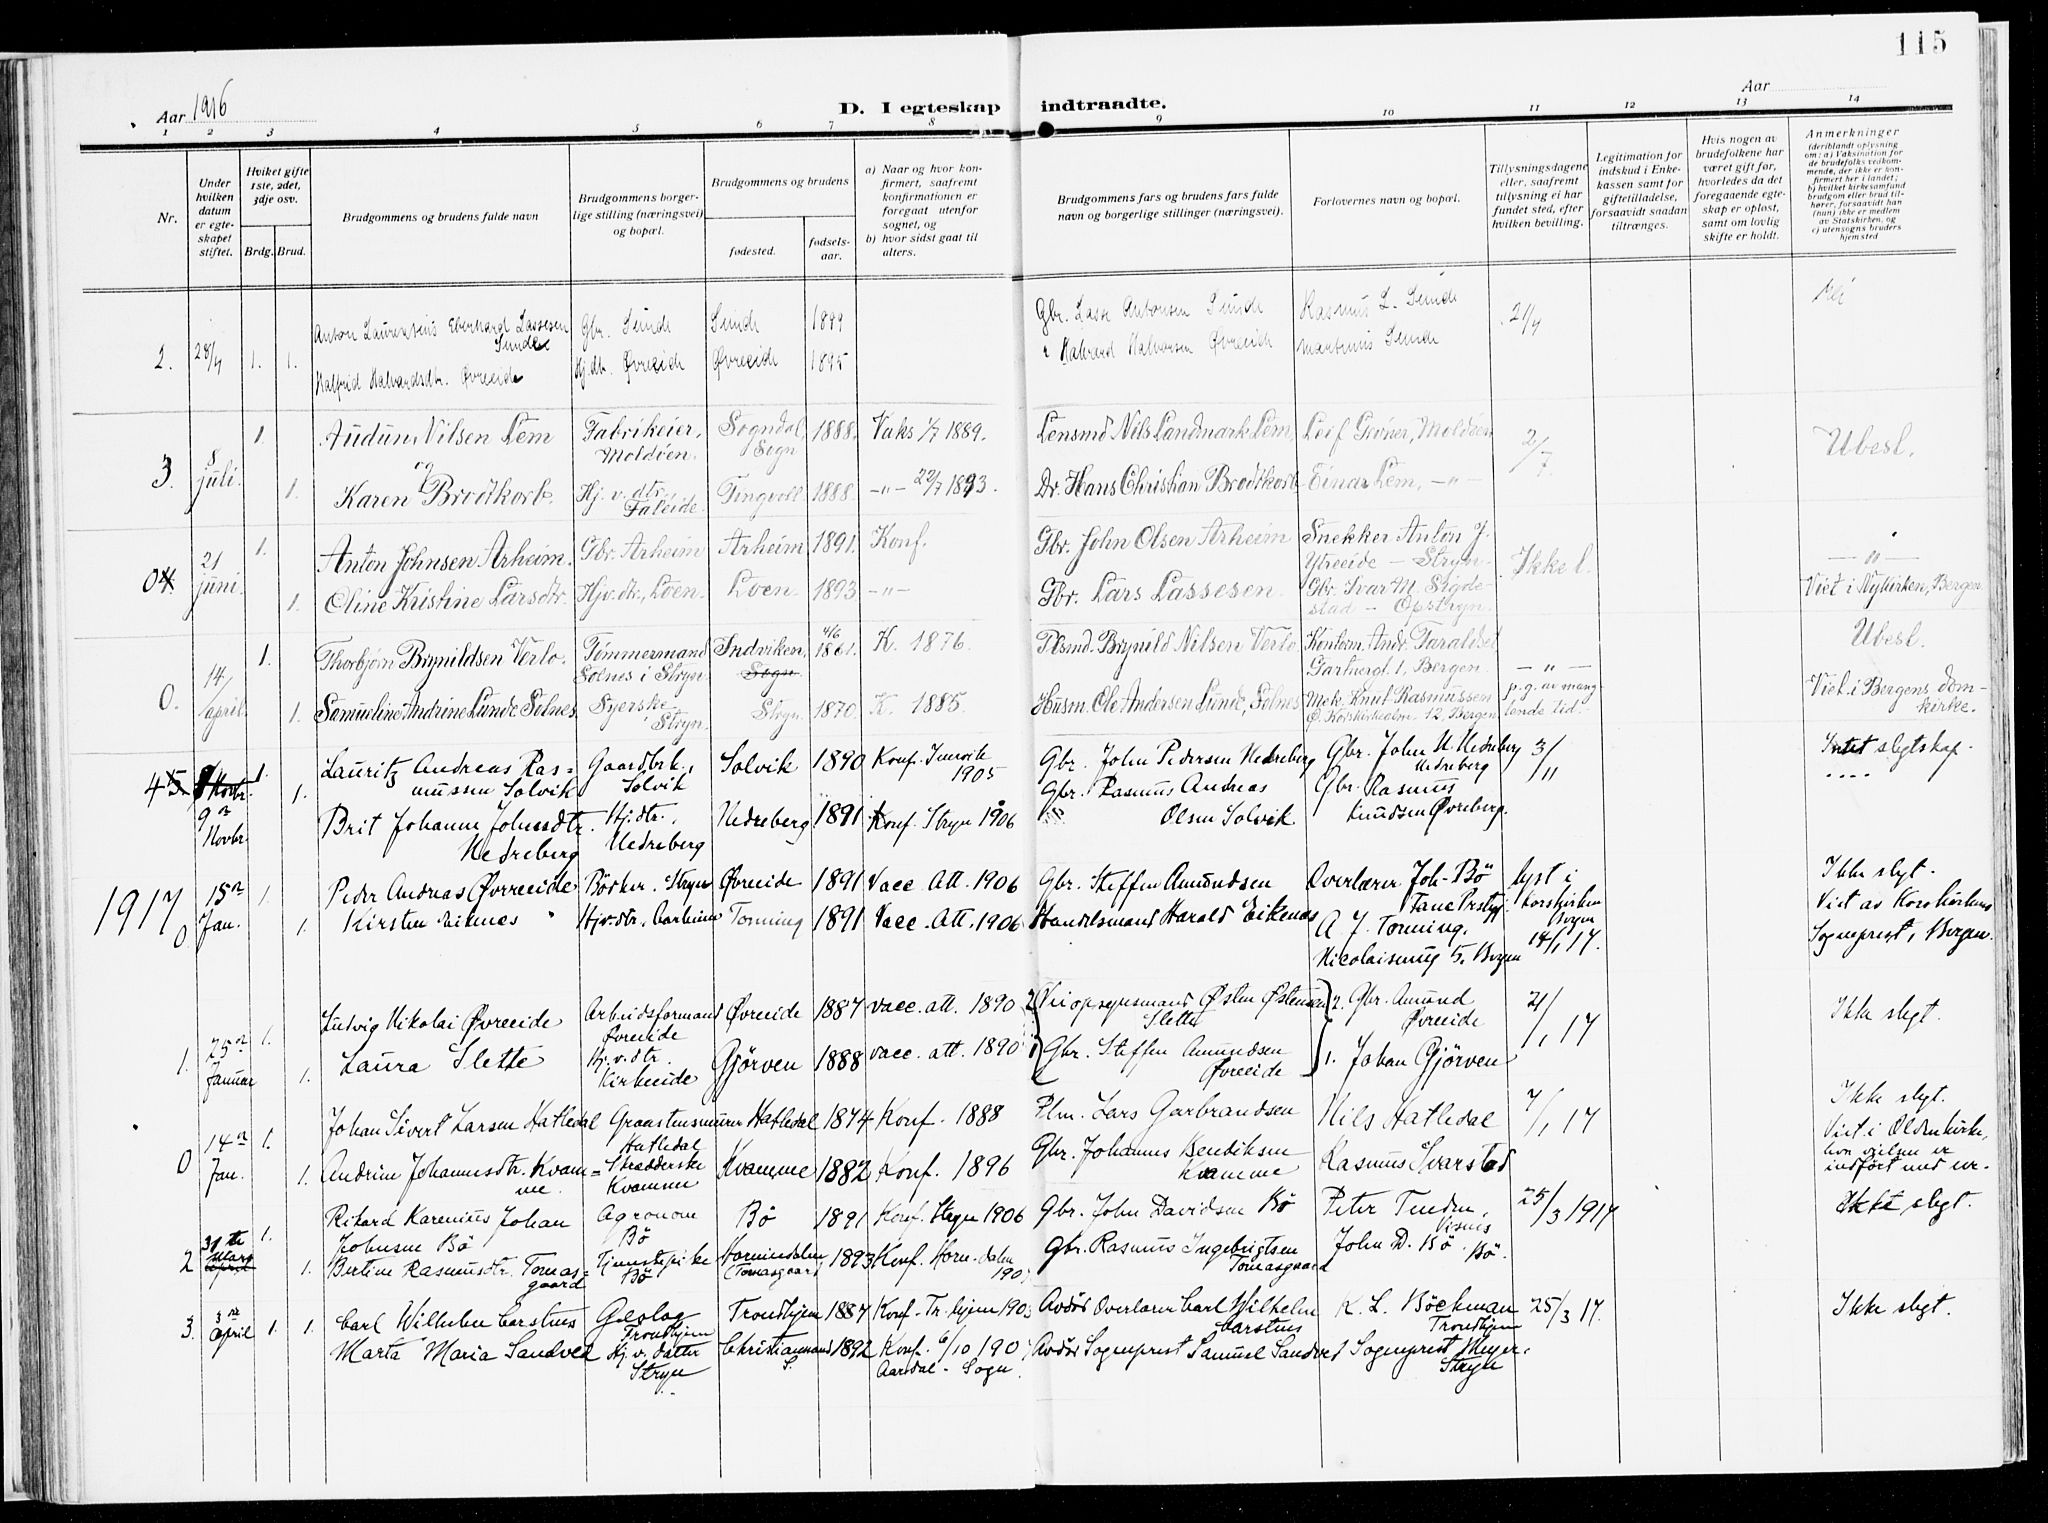 115
Aar 1916
D. I egteskap indtraadte.
Aar
1 2 3 4 5 6 7 8 9 10 11 12 13 14
Nr.
Under hvilken datum er egteskapet stiftet.
Hvilket gifte 1ste, 2det, 3dje osv.
Brdg. Brud.
Brudgommens og brudens fulde navn
Brudgommens borgerlige stilling (næringsvei) og bopæl.
Brudgommens og brudens
fødested.
fødselsaar.
a) Naar og hvor konfirmert, saafremt konfirmationen er foregaat utenfor sognet, og
b) hvor sidst gaat til alters.
Brudgommens fars og brudens fars fulde navn og borgerlige stillinger (næringsvei).
Forlovernes navn og bopæl.
Tillysningsdagene eller, saafremt tillysning ei har fundet sted, efter hvilken bevilling.
Legitimation for indskud i Enkekassen samt for giftetilladelse, forsaavidt saadan tiltrænges.
Hvis nogen av brudefolkene har været gift før, hvorledes da det foregaaende egteskap er opløst, samt om lovlig skifte er holdt.
Anmerkninger (deriblandt oplysning om: a) Vaksination for de brudefolks vedkommende, der ikke er konfirmert her i landet; b) hvilket kirkesamfund brudgom eller brud tilhører, forsaavidt han (hun) ikke er medlem av Statskirken, og c) utensogns bruders hjemsted
2. 28/4 1. 1.
Anton Laurentsius Eberhard Lassesen Sunde Gbr. Sunde Sunde 1889 Gbr. Lasse Antonsen Sunde Rasmus L. Sunde 2/4 Nei
Halfrid Halvardsdtr. Øvreeide Hjdtr. Øvreeide Øvreeide 1895 " Halvard Halvorsen Øvreeide Martinus Sunde
3. 8 juli. 1. 1.
Audun Nilsen Lem Fabrikeier, Moldøen. Sogndal, Sogn 1888. Vaks 1/7 1889. Lensmd Nils Landmark Lem, Leif Grøner, Moldøen 2/7. Ubesl.
og
Karen Brodtkorb. Hj. v. dtr. Faleide. Tingvoll 1888. -"- 22/7 1893. Dr. Hans Christian Brodtkorb Einar Lem, -"-
04 21 juni. 1. 1.
Anton Johnsen Arheim. Gbr. Arheim Arheim 1891. Konf. Gbr. John Olsen Arheim Snekker Anton J. Ytreeide - Stryn. Ikke l. -"-
Oline Kristine Larsdtr. Hjv. dtr., Loen. Loen 1893 -"- Gbr. Lars Lassesen. Gbr. Ivar M. Sigdestad - Opstryn. Viet i Nykirken, Bergen
0. 14/april. 1. 1.
Thorbjørn Brynildsen Verlo. Tømmermand Solnes i Stryn Indviken, Sogn 4/6 1861. K. 1876. Plsmd. Brynild Nilsen Verlo. Kontorm. Andr. Taraldset Gartnergt. 1, Bergen. -"- Ubesl.
Samueline Andrine Lunde Solnes. Syerske i Stryn. Stryn. 1870. K. 1885. Husm. Ole Andersen Lunde, Solnes Mek. Knut Rasmussen Ø. Korskirkealm. 12, Bergen p. g. av manglende tid. Viet i Bergens domkirke.
45 Novbr. 1. 1.
9de Novbr.
Lauritz Andreas Rasmussen Solvik Gaardbrk., Solvik Solvik 1890 Konf. Innvik 1905 Gbr. John Pedersen Nedreberg Gbr. John N. Nedreberg Nedreberg 3/11 Intet slegtskap.
Gbr. Rasmus Andreas Olsen Solvik. Gbr. Rasmus Knudsen Øvreberg.
Brit Johanne Johnsdtr. Nedreberg Hj. dtr., Nedreberg Nedreberg 1891 Konf. Stryn 1906
1917
0 15de Jan. 1. 1.
Peder Andreas Øvreeide Bøker. Stryn Øvreeide 1891 Vacc. Att. 1906 Gbr. Steffen Amundsen Overlærer Joh. Bø Fane Prstgj. lyst i Korskirken Bergen 14/1 17. Ikke slegt.
Kirsten Eikenes Hjv. dtr., Aarheim Tonning 1891 Vacc. Att. 1906 Handelsmand Harald Eikenæs A. J. Tonning, Nicolaismug 5, Bergen Viet av Korskirkens Sogneprest, Bergen.
1. 25de Januar 1. 1.
Ludvig Nikolai Øvreeide Arbeidsformand Øvreeide Øvreeide 1887 vacc. att. 1890 2. Veiopsynsmand Østen Østensen Slette 2. Gbr. Amund Øvreeide 21/1 17 Ikke slegt.
Laura Slette Hj. v. dtr. Kirkeeide Gjørven 1888 vacc. att. 1890 1. Gbr. Steffen Amundsen Øvreeide 1. Johan Gjørven
0 14de Jan. 1. 1.
Johan Sivert Larsen Hatledal Graastensmurer Hatledal Hatledal 1874 Konf. 1888 Plm. Lars Garbrandsen Nils Hatledal 7/1 17 Ikke slegt.
Andrine Johannesdtr. Kvamme Skredderske Kvamme Kvamme 1882 Konf. 1896 Gbr. Johannes Bendiksen Kvamme Rasmus Svarstad Viet i Olden kirke, hvor vielsen er indført med nr.
2 31te Mars april 1. 1.
Rikard Karenius Johan Johnsen Bø Agronom Bø Bø 1891 Konf. Stryn 1906 Gbr. John Davidsen Bø Peter Tenden, Visnes 25/3 1917 Ikke slegt.
Bertine Rasmusdtr. Tomasgaard Tjenestepike Bø Hornindalen (Tomasgaard) 1893 Konf. Horn-dalen 190 Gbr. Rasmus Ingebrigtsen Tomasgaard John D. Bø. Bø.
3. 3de April 1. 1.
Carl Wilhelm Carstens Geolog Trondhjem Trondhjem 1887 Konf. Tr.hjem 1903 Avdøde Overlærer Carl Wilhelm Carstens K. L. Bøckman Trondhjem 25/3 17. Ikke slegt.
Marta Maria Sandved Hj. v. datter Stryn Christiansand S. 1892 Konf. 6/10 1907 Aardal - Sogn. Avdøde Sogneprest Samuel Sandved Sogneprest Meyer. Stryn